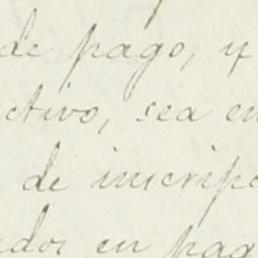 de pago, y
ectivo, sea en
de inscripc
ados en pag